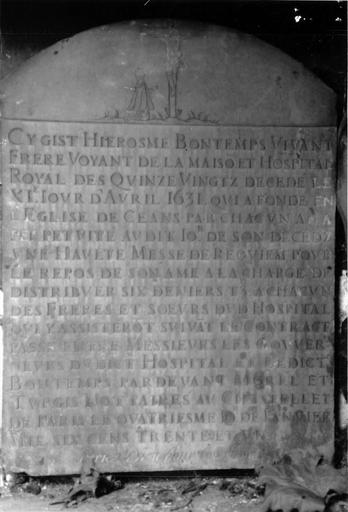 CY GIST HIEROSME BONTEMPS VIVANT
FRERE VOYANT DE LA MAISO ET HOSPITAL
ROYAL DES QVINZE VINGTZ DECEDE LE
XI. IOVR D'AVRIL 1631. QVI A FONDE EN
L'EGLISE DE CEANS PAR CHACVN AN A
PERPETVITE AVDIT IOR DE SON DECEDZ
VNE HAVLTE MESSE DE REQVIEM POVR
LE REPOS DE SON AME A LA CHARGE DE
DISTRIBVER SIX DENIERS TZ A CHACVN
DES FRERES ET SOEVRS DVD HOSPITAL
QVI Y ASSISTEROT SVIVAT LE CONTRACT
PASSE ENTRE MESSIEVRS LES GOVVER
NEVRS DVDICT HOSPITAL ET LEDICT
BONTEMPS PARDEVANT MOREL ET
TVRGIS NOTAIRES AV CHASTELLET
DE PARIS LE QVATRIESME IO DE IANVIER
MIL SIX CENS TRENTE ET VN